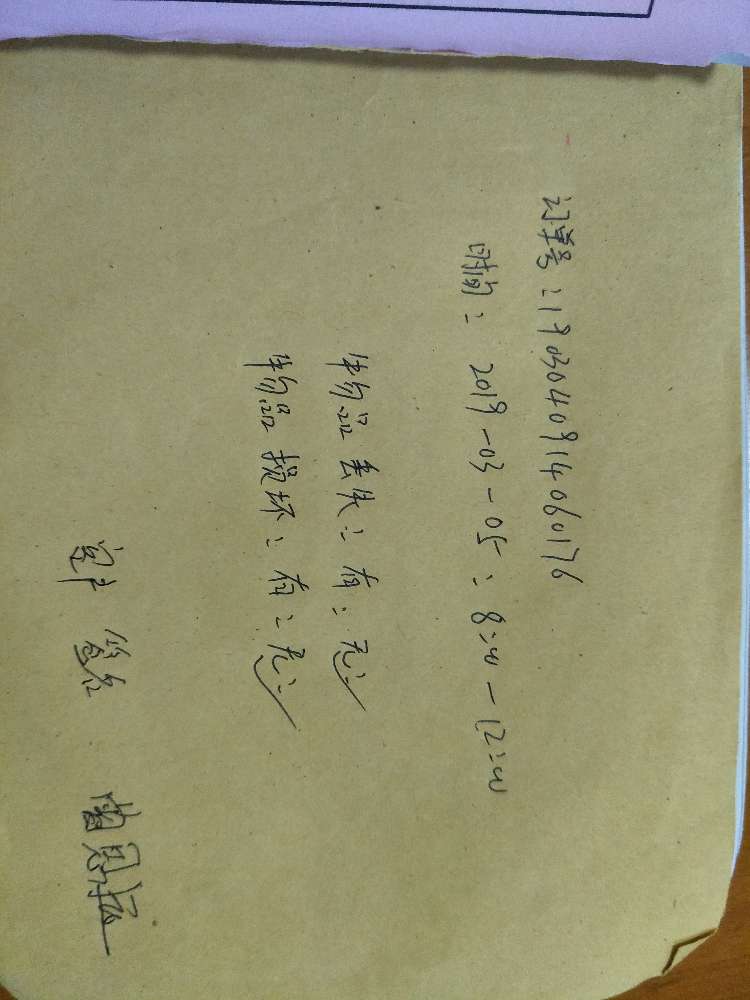 订单号：1903040914060176
时间： 2019-03-05： 8:00-12:00
物品丢失：有：无：✓
物品损坏：有：无：✓
客户 签名